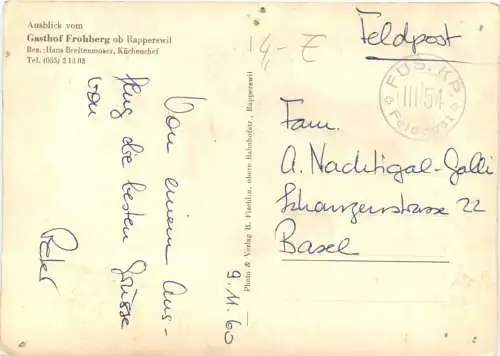 Ausblick vom
Gasthof Frohberg ob Rapperswil
Bes.: Hans Breitenmoser, Küchenchef
Tel. (055) 2 18 02
14,- E
Feldpost
FÜS. KP.
III/54
Feldpost
Von einem Aus-
flug die besten Grüsse
von
Peter
9.11.60
Photo & Verlag B. Fischlin, obere Bahnhofstr., Rapperswil
Fam.
A. Nachtigal-Galli
Schanzenstrasse 22
Basel